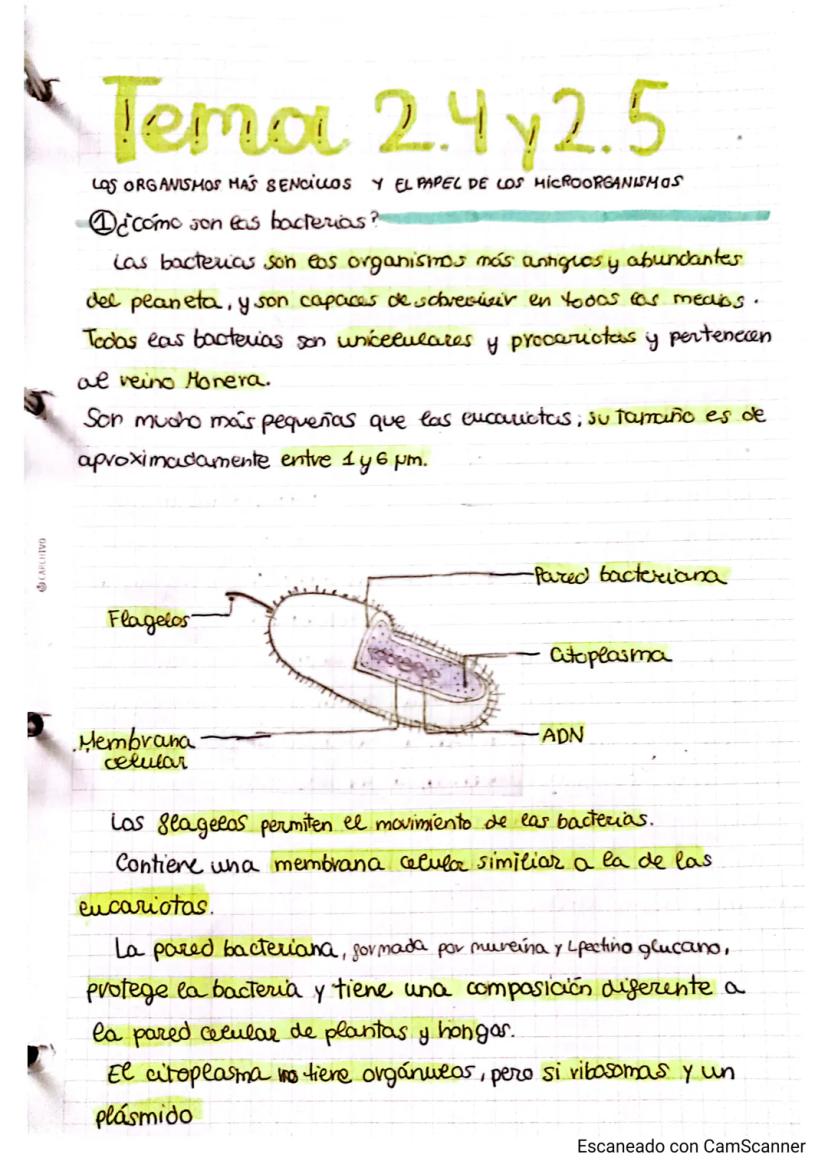 Tema 2.4 y 2.5
LOS ORGANISMOS MÁS SENCILLOS Y EL PAPEL DE LOS MICROORGANISMOS
① ¿cómo son las bacterias?
Las bacterias son los organismos más antiguos y abundantes
del planeta, y son capaces de sobrevivir en todos los medios.
Todas las bacterias son unicelulares y procariotas y pertenecen
al reino Monera.
Son mucho más pequeñas que las eucariotas; su tamaño es de
aproximadamente entre 1 y 6 µm.
Pared bacteriana
Flagelos
Citoplasma
Membrana
celular
ADN
Los flagelos permiten el movimiento de las bacterias.
Contiene una membrana celular similiar a la de las
eucariotas.
La pared bacteriana, formada por mureína y Lpectino glucano,
protege la bacteria y tiene una composición diferente a
la pared celular de plantas y hongos.
El citoplasma no tiene orgánulos, pero si ribosomas y un
plásmido
Escaneado con CamScanner